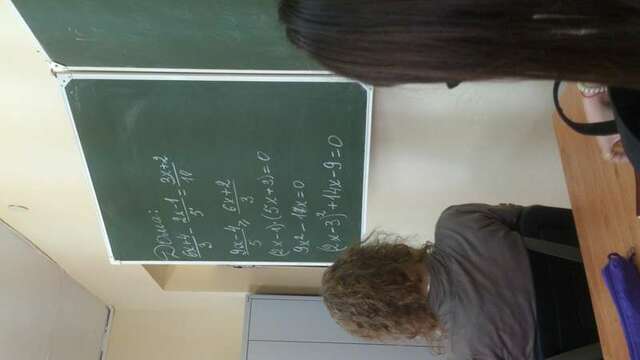 Дома:
(6x+4)/3 - (2x-1)/5 = (3x+2)/10
(9x-4)/5 = (6x+2)/3
(2x-1)(5x+3)=0
9x²-18x=0
(2x-3)²+14x-9=0